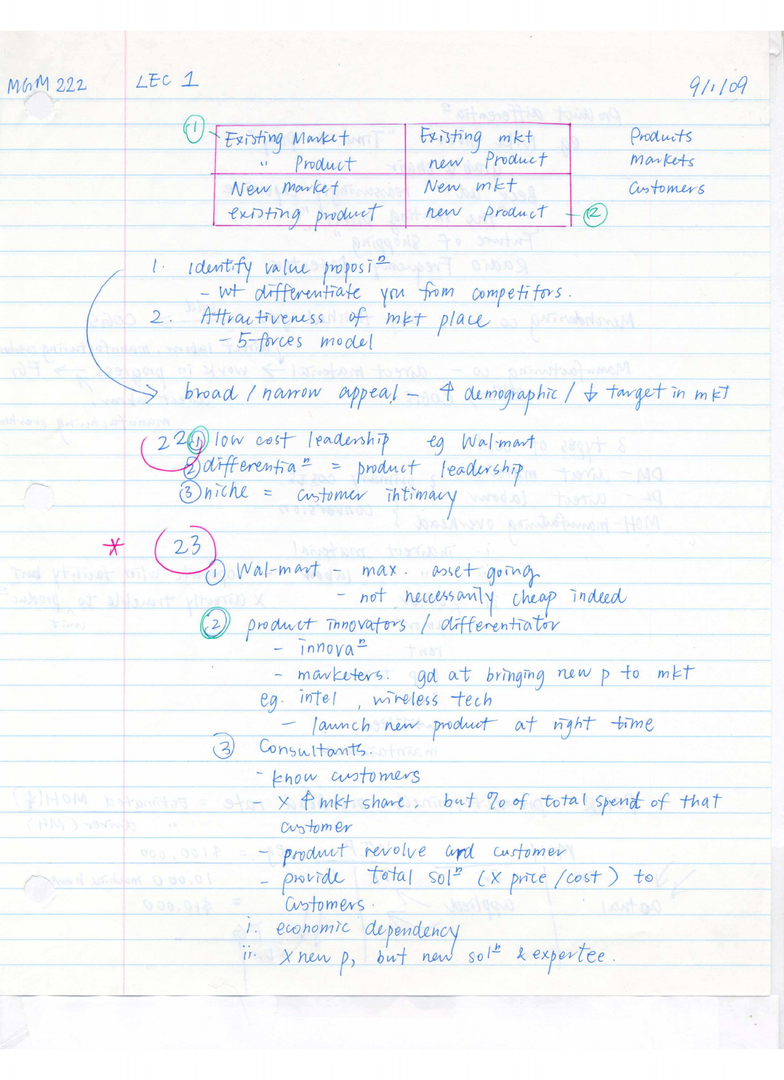 MGM 222 LEC 1 9/1/09
① Existing Market Existing mkt Products
" Product new Product Markets
New Market New mkt Customers
existing product new product ②
1. identify value proposiⁿ
- wt differentiate you from competitors.
2. Attractiveness of mkt place
- 5-forces model
broad / narrow appeal - ↑ demographic / ↓ target in mkt
22 ① low cost leadership eg Wal-mart
② differentiaⁿ = product leadership
③ niche = customer intimacy
* 23
① Wal-mart - max. asset going
- not neccessarily cheap indeed
② product innovators / differentiator
- innovaⁿ
- marketers. gd at bringing new p to mkt
eg. intel, wireless tech
- launch new product at right time
③ Consultants.
- know customers
- X ↑ mkt share. but % of total spend of that
customer
- product revolve and customer
- provide total solⁿ (X price/cost) to
customers.
i. economic dependency
ii. X new p, but new solⁿ & expertee.